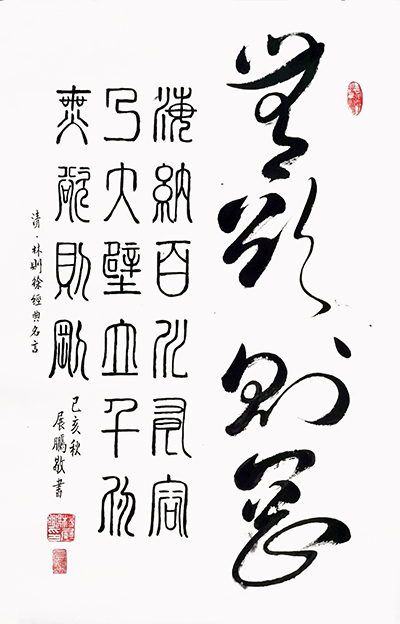 無欲則剛
海納百川有容
乃大壁立千仞
無欲則剛
清·林則徐經典名言
己亥秋
展鵬敬書